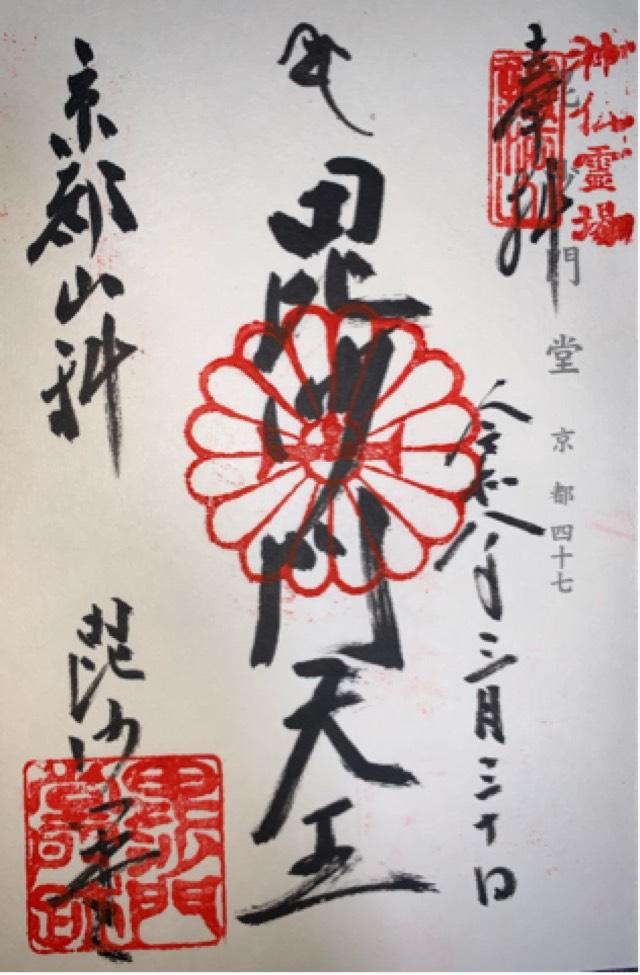 神仏靈場
毘沙門堂 京都四十七
奉拝
令和八年三月三十日
毘沙門天王
京都山科
毘沙門堂